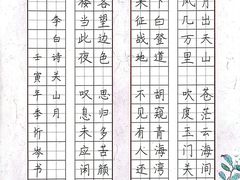 月出天山 苍茫云海间
风几万里 吹度玉门关
下白登道 胡窥青海湾
来征战地 不见有人还
客望边色 思归多苦颜
楼当此夜 叹息未应闲
李白诗关山月
壬寅年李忻岑书